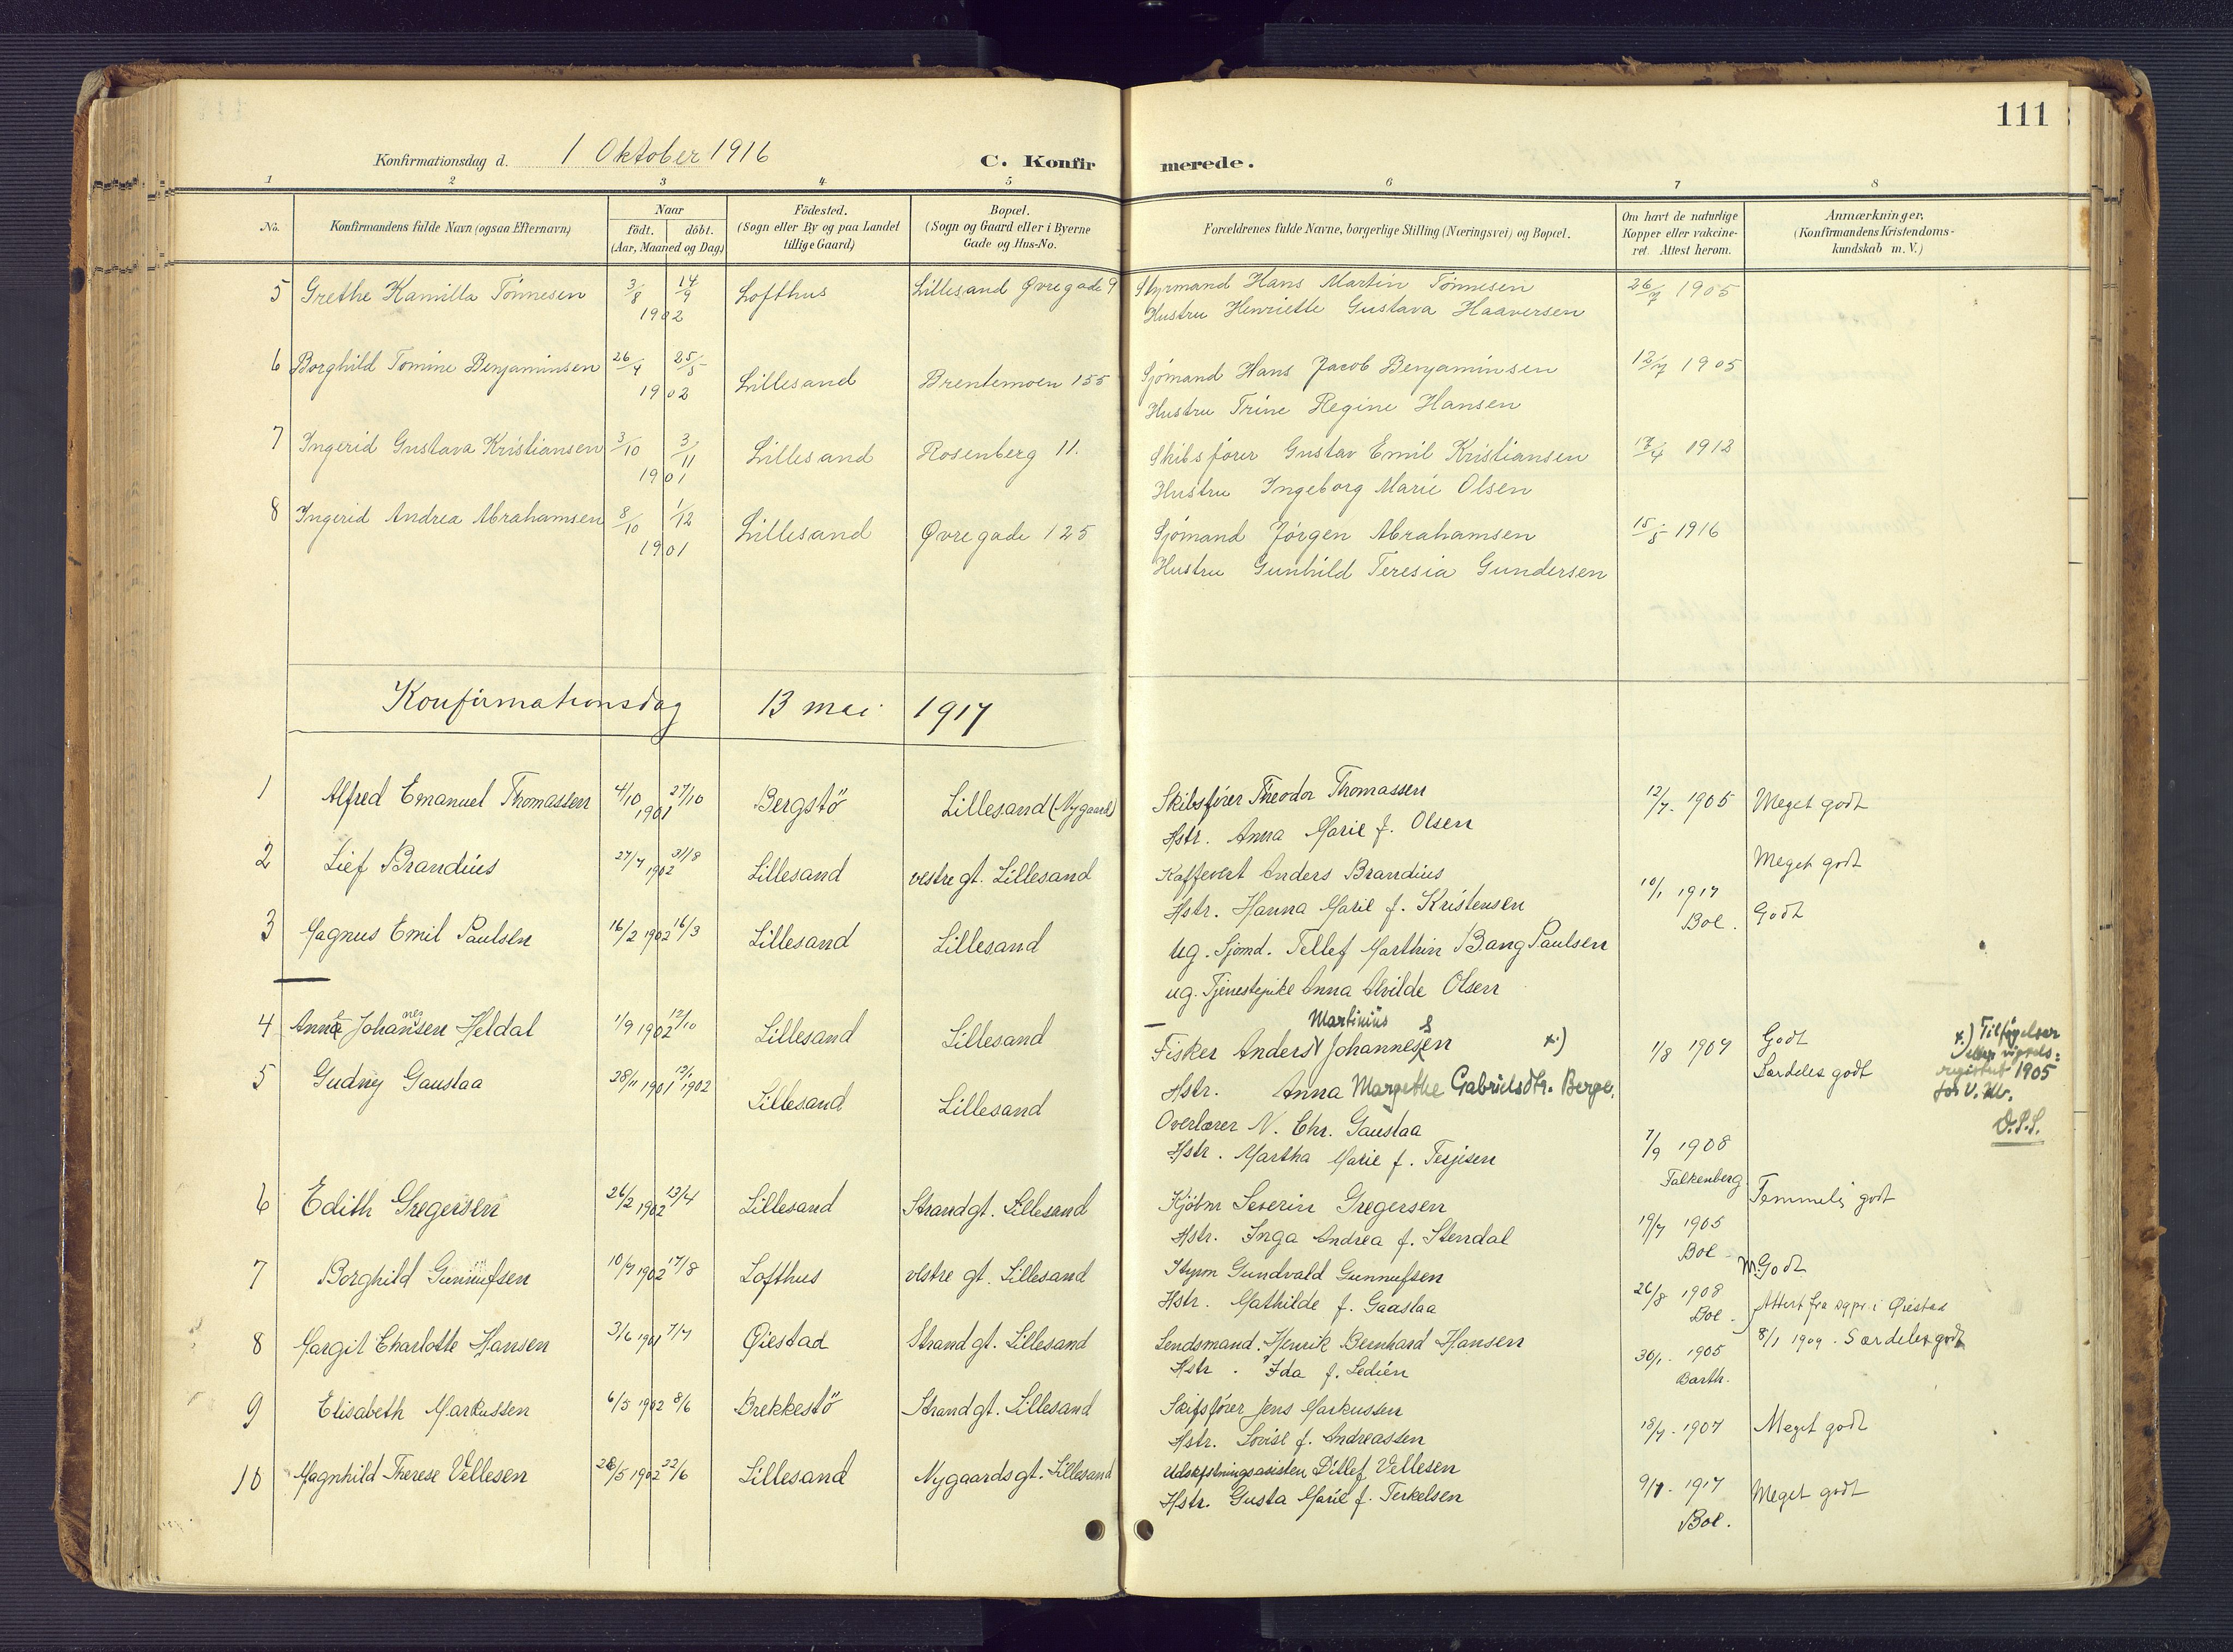 111
Konfirmationsdag d. 1 Oktober 1916
C. Konfirmerede.
1 2 3 4 5 6 7 8
No.
Konfirmandens fulde Navn (ogsaa Efternavn)
Naar
födt. döbt.
(Aar, Maaned og Dag)
Födested.
(Sogn eller By og paa Landet
tillige Gaard)
Bopæl.
(Sogn og Gaard eller i Byerne
Gade og Hus-No.
Forældrenes fulde Navne, borgerlige Stilling (Næringsvei) og Bopæl.
Om havt de naturlige
Kopper eller vakcine-
ret. Attest herom.
Anmærkninger.
(Konfirmandens Kristendoms-
kundskab m. V.)
5 Grethe Kamilla Tönnesen 3/8 14/9 1902 Lofthus Lillesand Øvregade 9 Styrmand Hans Martin Tönnesen 26/7 1905
Hustru Henriette Gustava Haaversen
6 Borghild Tomine Benjaminsen 26/4 25/5 1902 Lillesand Brentemoen 155 Sjömand Hans Jacob Benjaminsen 12/7 1905
Hustru Trine Regine Hansen
7 Ingerid Gustava Kristiansen 3/10 3/11 1901 Lillesand Rosenberg 11. Skibsförer Gustav Emil Kristiansen 17/4 1912
Hustru Ingeborg Marie Olsen
8 Ingerid Andrea Abrahamsen 8/10 1/12 1901 Lillesand Øvregade 125 Sjömand Jörgen Abrahamsen 15/5 1916
Hustru Gunhild Teresia Gundersen
Konfirmationsdag 13 mai 1917
1 Alfred Emanuel Thomassen 4/10 27/10 1901 Bergstö Lillesand (Nygaard) Skibsförer Theodor Thomassen 12/7. 1905 Meget godt
Hstr. Anna Marie f. Olsen
2 Lief Brandius 27/7 1902 31/8 Lillesand vestre gt. Lillesand Kaffevert Anders Brandius Meget godt
Hstr. Hanna Marie f. Kristensen 10/1 1917
Boe.
3 Magnus Emil Paulsen 16/2 1902 16/3 Lillesand Lillesand ug. Sjömd. Tellef Marthin Bang Paulsen Godt
ug. Tjenestepike Anna Alvilde Olsen
4 Anna Johannessen Heldal 1/9 1902 12/10 Lillesand Lillesand Fisker Anders Martinius Johannesen x) 1/8 1907 Godt
Hstr. Anna Margethe Gabrielsdtr. Berge.
x.) Tilföyelser
registret 1905
D.S.S.
5 Gudny Gaustaa 28/11 1901 12/1 1902 Lillesand Lillesand Overlærer N. Chr. Gaustaa Særdeles godt
Hstr. Martha Marie f. Terjesen 7/9 1908
Falkenberg
6 Edith Gregersen 26/2 1902 13/4 Lillesand Strandgt. Lillesand Kjöbm Severin Gregersen Temmelig godt
Hstr. Inga Andrea f. Stendal 19/7 1905
Boe
7 Borghild Gunnufsen 10/7 1902 17/8 Lofthus vestre gt. Lillesand Styrm Gundvald Gunnufsen M. Godt
Hstr. Mathilde f. Gaastaa 26/8 1908
Boe.
8 Margit Charlotte Hansen 3/6 1901 7/7 Øiestad Strandgt. Lillesand Lendsmand. Henrik Bernhard Hansen Attest fra sgpr. i Øiestad
8/1 1909. Særdeles godt
Hstr. Ida f. Ledien 30/1. 1905
Barth.
9 Elisabeth Markussen 6/5 1902 8/6 Brekkestö Strandgt. Lillesand Skipsförer Jens Markussen
Hstr. Lovise f. Andreassen 18/7. 1907 Meget godt
10 Magnhild Therese Vellesen 26/5 1902 22/6 Lillesand Nygaardsgt. Lillesand Ditlef Vellesen
Hstr. Gusta Marie f. Terkelsen 9/1. 1917 Meget godt
Boe.